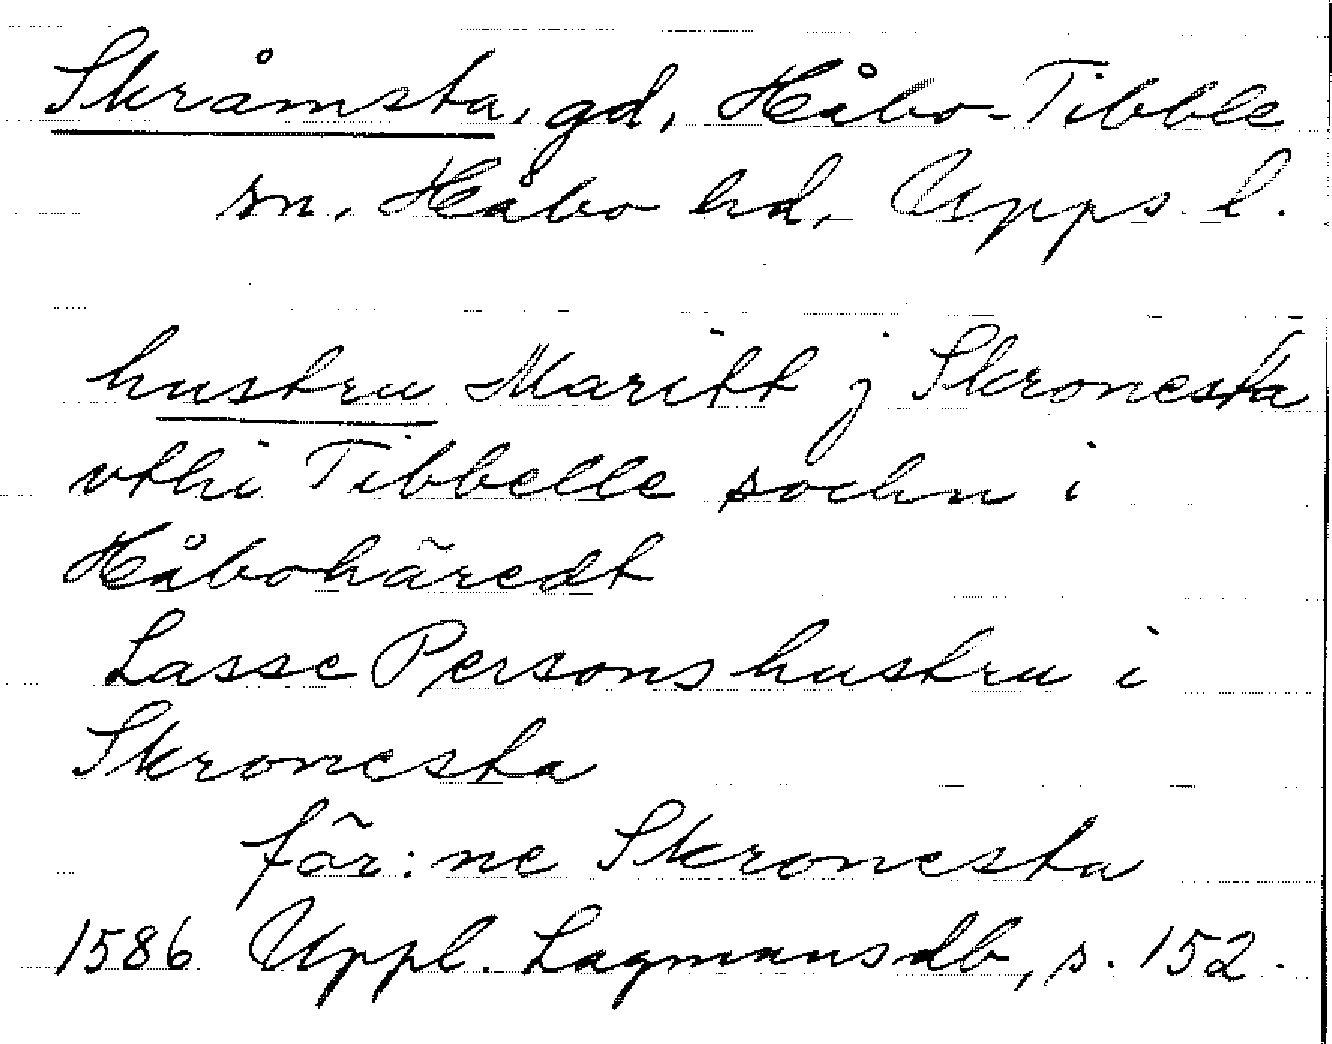 Skråmsta, gd, Håbo-Tibble
sn. Håbo hd, Upps l.
hustru Maritt j Skronesta
vthi Tibbelle sochn i
Håbohäredt
Lasse Persons hustru i
Skronesta
för:ne Skronesta
1586 Uppl. Lagmansdb, s. 152.